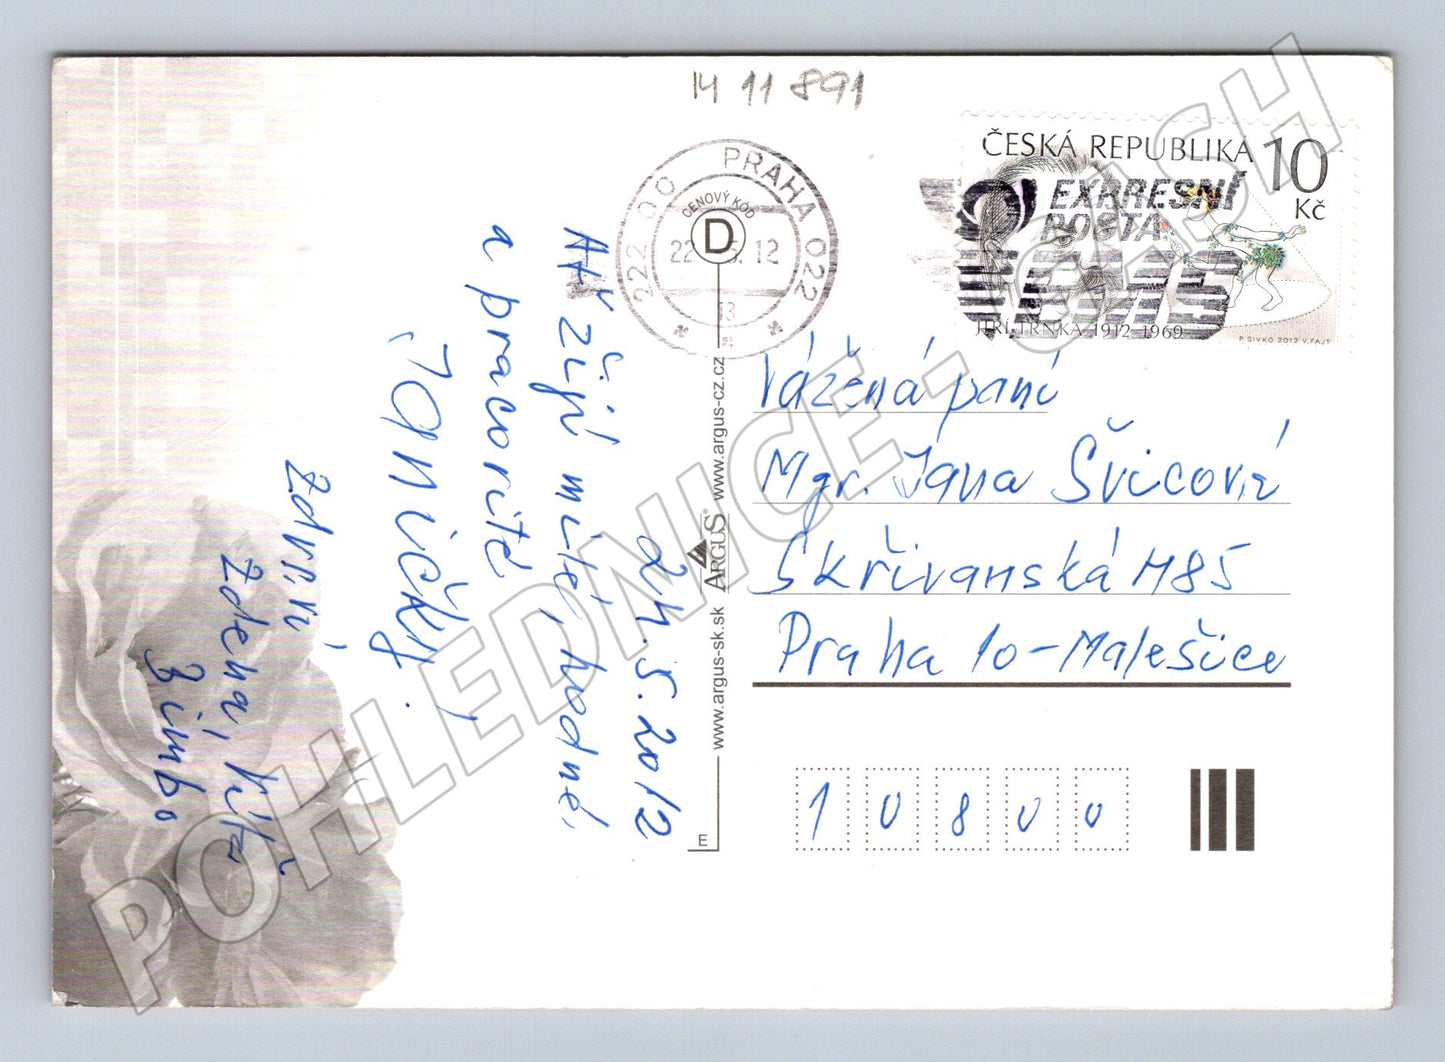 14 11 891
ČESKÁ REPUBLIKA 10 Kč
JIŘÍ TRNKA 1912-1969
P. SIVKO 2012 V. FAJT
EXPRESNÍ
POŠTA
EMS
222 00 PRAHA 022
CENOVÝ KÓD
D
22 5. 12
13
24.5.2012
Ať žijí milé, hodné,
a pracovité
"Janičky".
Zdraví
Zdena,
Bimbo
www.argus-sk.sk ARGUS® www.argus-cz.cz
E
Vážená paní
Mgr. Jana Švicová
Skřivanská 485
Praha 10-Malešice
10800
POHLEDNICE - CASH